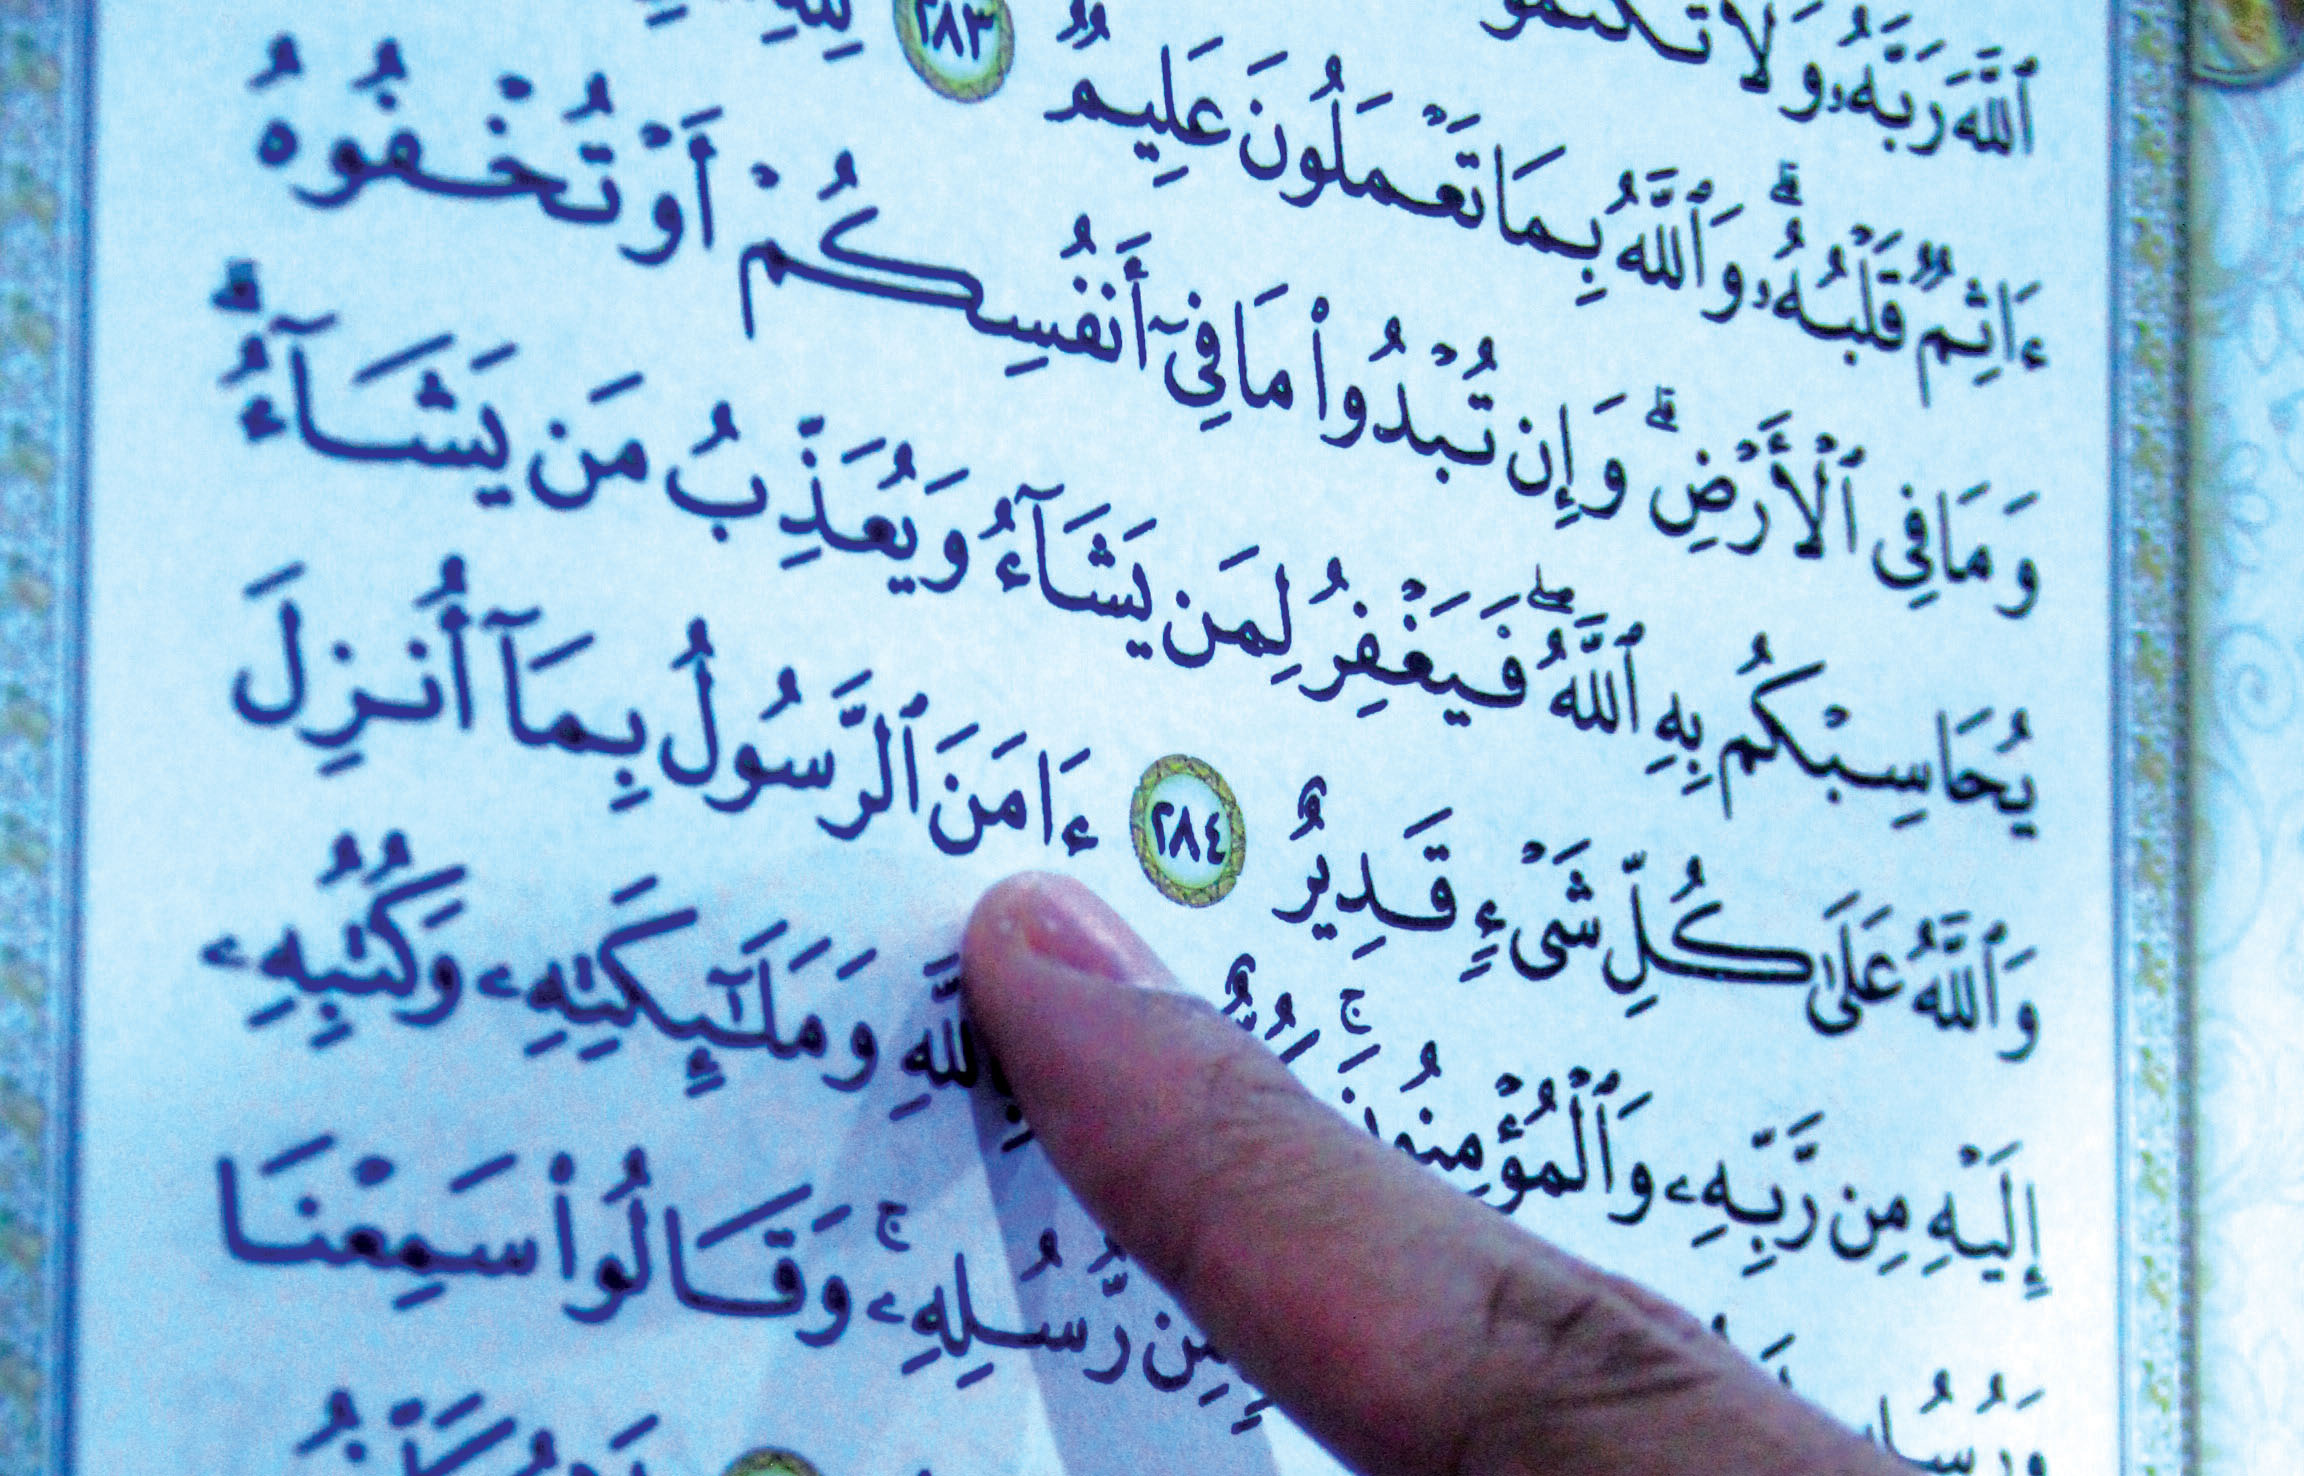 ٱللَّهَ رَبَّهُۥ وَلَا تَكْتُمُوا
ءَاثِمٌ قَلْبُهُۥ ۗ وَٱللَّهُ بِمَا تَعْمَلُونَ عَلِيمٌ ٢٨٣ لِلَّهِ
وَمَا فِى ٱلْأَرْضِ ۗ وَإِن تُبْدُوا۟ مَا فِىٓ أَنفُسِكُمْ أَوْ تُخْفُوهُ
يُحَاسِبْكُم بِهِ ٱللَّهُ ۖ فَيَغْفِرُ لِمَن يَشَآءُ وَيُعَذِّبُ مَن يَشَآءُ ۗ
وَٱللَّهُ عَلَىٰ كُلِّ شَىْءٍ قَدِيرٌ ٢٨٤ ءَامَنَ ٱلرَّسُولُ بِمَآ أُنزِلَ
إِلَيْهِ مِن رَّبِّهِۦ وَٱلْمُؤْمِنُونَ ۚ بِٱللَّهِ وَمَلَـٰٓئِكَتِهِۦ وَكُتُبِهِۦ
مِّن رُّسُلِهِۦ ۚ وَقَالُوا۟ سَمِعْنَا